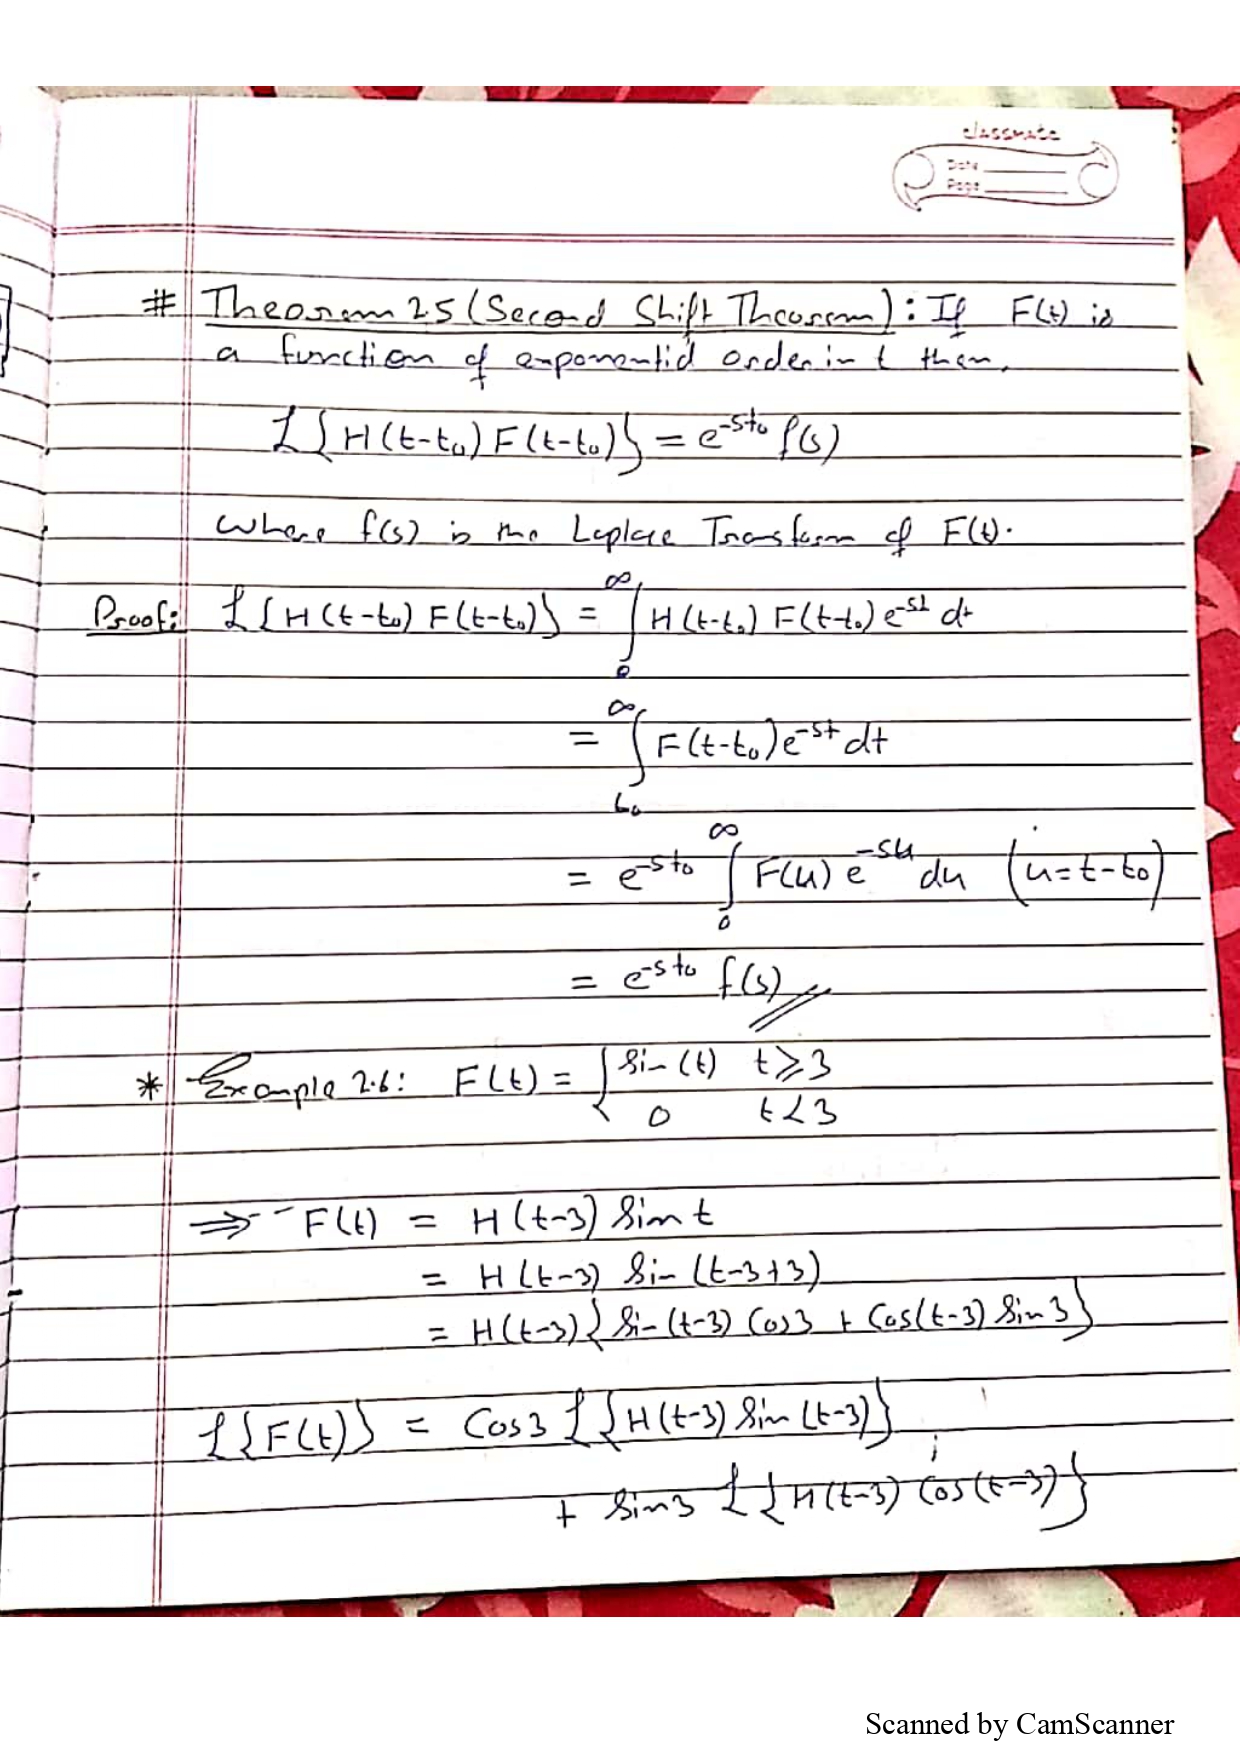 classmate
Date
Page
# Theorem 2.5 (Second Shift Theorem): If F(t) is
a function of exponential order in t then,
ℒ{H(t-t₀) F(t-t₀)} = e^{-st₀} f(s)
where f(s) is the Laplace Transform of F(t).
Proof: ℒ{H(t-t₀) F(t-t₀)} = ∫₀^∞ H(t-t₀) F(t-t₀) e^{-st} dt
= ∫_{t₀}^∞ F(t-t₀) e^{-st} dt
= e^{-st₀} ∫₀^∞ F(u) e^{-su} du (u = t-t₀)
= e^{-st₀} f(s)
* Example 2.6: F(t) = { sin(t) t ≥ 3
0 t < 3
⇒ F(t) = H(t-3) sin t
= H(t-3) sin(t-3+3)
= H(t-3) { sin(t-3) cos3 + cos(t-3) sin3 }
ℒ{F(t)} = cos3 ℒ{H(t-3) sin(t-3)}
+ sin3 ℒ{H(t-3) cos(t-3)}
Scanned by CamScanner